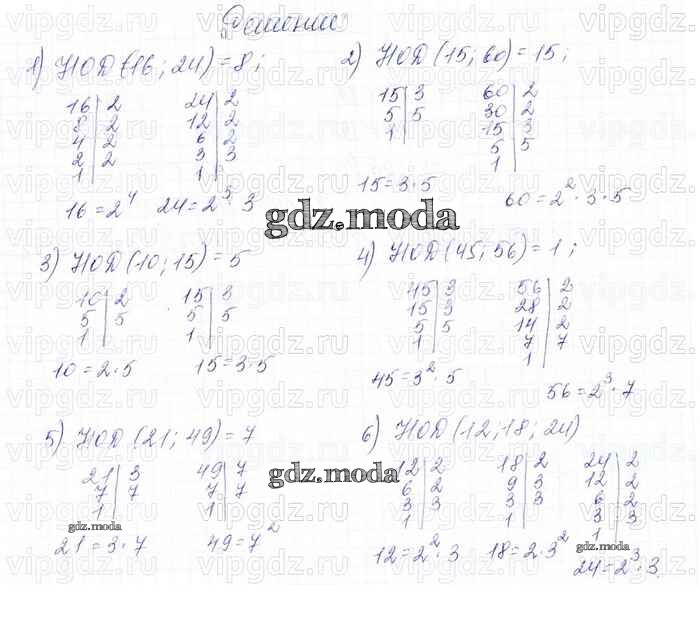 Решение
1) НОД (16; 24) = 8;
16 | 2
8 | 2
4 | 2
2 | 2
1 |
24 | 2
12 | 2
6 | 2
3 | 3
1 |
16 = 2⁴ 24 = 2³ · 3
2) НОД (15; 60) = 15;
15 | 3
5 | 5
1 |
60 | 2
30 | 2
15 | 3
5 | 5
1 |
15 = 3 · 5
60 = 2² · 3 · 5
gdz.moda
3) НОД (10; 15) = 5
10 | 2
5 | 5
1 |
15 | 3
5 | 5
1 |
10 = 2 · 5 15 = 3 · 5
4) НОД (45; 56) = 1;
45 | 3
15 | 3
5 | 5
1 |
56 | 2
28 | 2
14 | 2
7 | 7
1 |
45 = 3² · 5
56 = 2³ · 7
5) НОД (21; 49) = 7
21 | 3
7 | 7
1 |
49 | 7
7 | 7
1 |
gdz.moda
gdz.moda
21 = 3 · 7 49 = 7²
6) НОД (12; 18; 24)
12 | 2
6 | 2
3 | 3
1 |
18 | 2
9 | 3
3 | 3
1 |
24 | 2
12 | 2
6 | 2
3 | 3
1 |
gdz.moda
12 = 2² · 3 18 = 2 · 3²
24 = 2³ · 3
vipgdz.ru